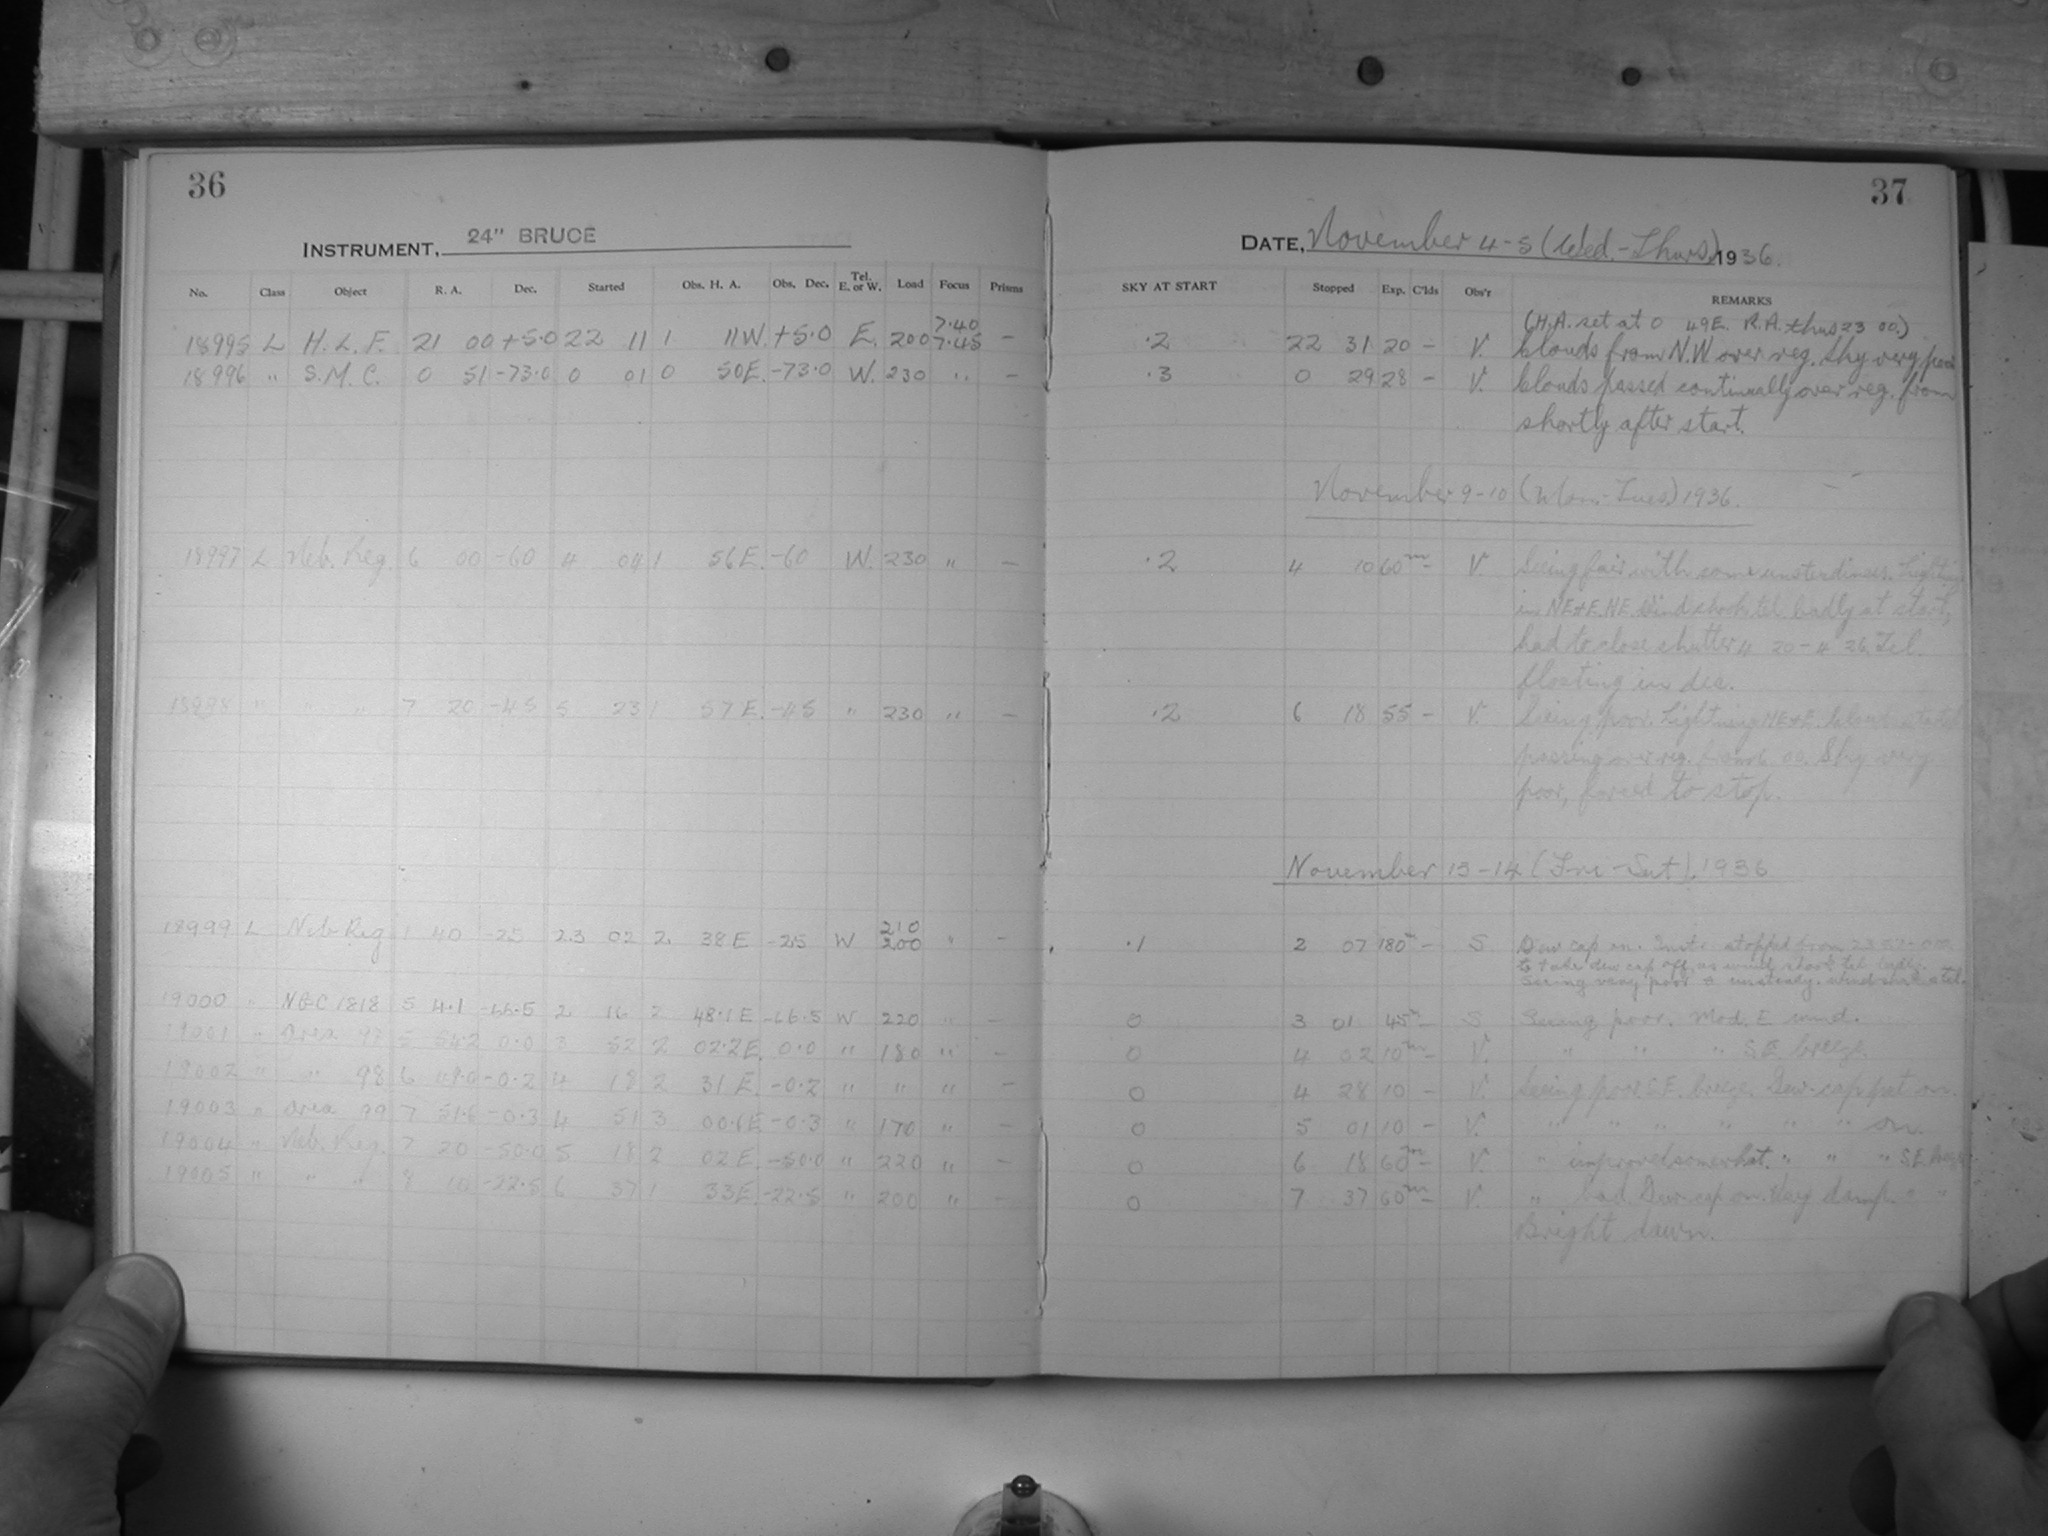 36
INSTRUMENT, 24" BRUCE
No. Class Object R. A. Dec. Started Obs. H. A. Obs. Dec. Tel. E. or W. Load Focus Prisms
18995 L H.L.F. 21 00 +5.0 22 11 1 11W. +5.0 E. 200 7.40 7.45 —
18996 " S.M.C. 0 51 -73.0 0 01 0 50E. -73.0 W. 230 " —
18997 L Neb. Reg. 6 00 -60 4 04 1 56E. -60 W. 230 " —
18998 " " " 7 20 -45 5 23 1 57E. -45 " 230 " —
18999 L Neb Reg 1 40 -25 23 02 2 38E -25 W 210 200 " —
19000 " NGC 1818 5 4.1 -66.5 2 16 2 48.1E -66.5 W 220 " —
19001 " Area 97 5 54.2 0.0 3 52 2 02.2E. 0.0 " 180 " —
19002 " " 98 6 49.0 -0.2 4 18 2 31E. -0.2 " " " —
19003 " Area 99 7 51.6 -0.3 4 51 3 00.6E -0.3 " 170 " —
19004 " Neb. Reg. 7 20 -50.0 5 18 2 02E. -50.0 " 220 " —
19005 " " " 8 10 -22.5 6 37 1 33E. -22.5 " 200 " —
37
DATE, November 4-5 (Wed.-Thurs) 1936.
SKY AT START Stopped Exp. C'lds Obs'r REMARKS
(H.A. set at 0 49E. R.A. thus 23 00.)
.2 22 31 20 — V. Clouds from N.W over reg. Sky very poor
.3 0 29 28 — V. Clouds passed continually over reg. from
shortly after start.
November 9-10 (Mon.-Tues) 1936.
.2 4 10 60m — V Seeing fair with some unsteadiness. Lightning
in NE+E. NE. Wind shook tel. badly at start,
had to close shutter 4 20-4 26. Tel.
floating in dec.
.2 6 18 55 — V. Seeing poor. Lightning NE+E. Clouds
passing over reg. from 6 00. Sky very
poor, forced to stop.
November 13-14 (Fri-Sat). 1936
.1 2 07 180m — S Dew cap on. stopped from
to take dew cap off as wind shook tel. badly.
Seeing very poor & unsteady. wind tel.
0 3 01 45m — S Seeing poor. Mod. E wind.
0 4 02 10m — V. " " " S.E. breeze
0 4 28 10 — V. Seeing poor S.E. breeze. Dew-cap put on.
0 5 01 10 — V. " " " " " " on.
0 6 18 60m — V. " improved somewhat. " " " S.E. breeze
0 7 37 60m — V. " bad. Dew-cap on. Very damp. " "
Bright dawn.